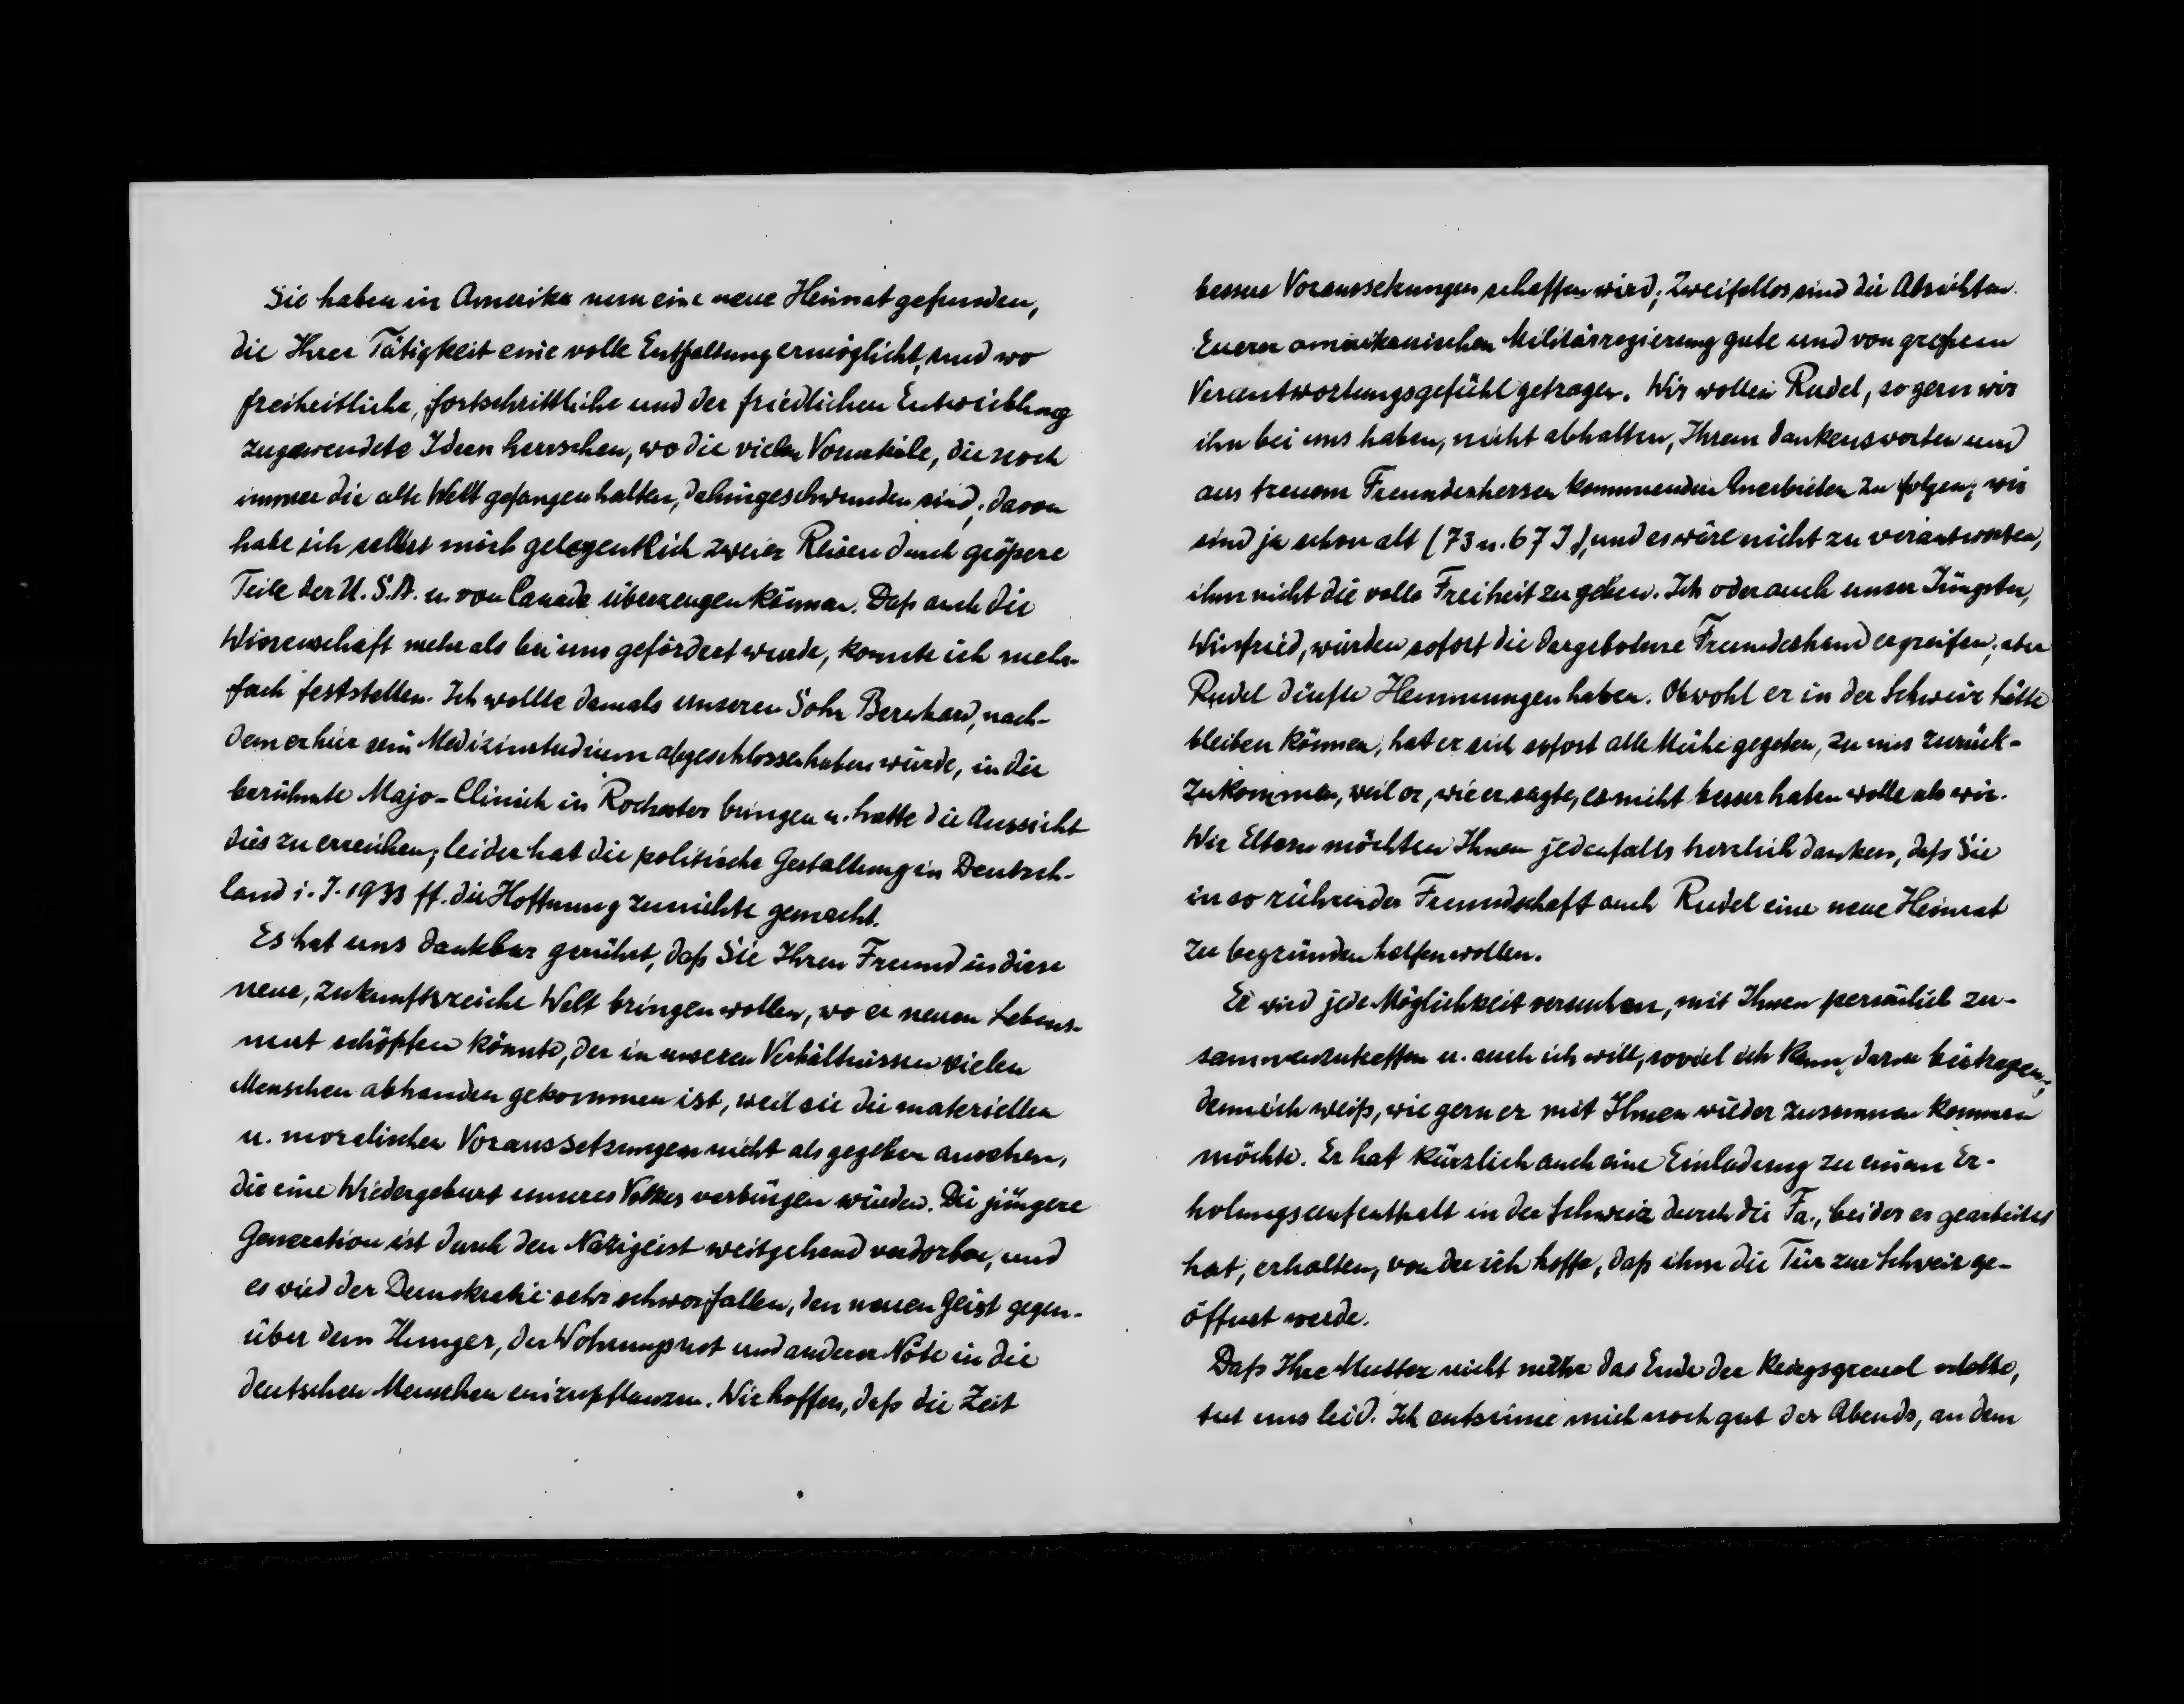 Sie haben in Amerika nun eine neue Heimat gefunden,
die Ihrer Tätigkeit eine volle Entfaltung ermöglicht, und wo
freiheitliche, fortschrittliche und der friedlichen Entwicklung
zugewendete Ideen herrschen, wo die vielen Vorurteile, die noch
immer die alte Welt gefangen halten, dahingeschwunden sind; davon
habe ich selbst mich gelegentlich zweier Reisen durch größere
Teile der U.S.A. u. von Canada überzeugen können. Daß auch die
Wissenschaft mehr als bei uns gefördert wurde, konnte ich mehr-
fach feststellen. Ich wollte damals unseren Sohn Bernhard, nach-
dem er hier sein Medizinstudium abgeschlossen haben würde, in die
berühmte Majo-Clinich in Rochester bringen u. hatte die Aussicht
dies zu erreichen; leider hat die politische Gestaltung in Deutsch-
land i. J. 1933 ff. die Hoffnung zunichte gemacht.
Es hat uns dankbar gerührt, daß Sie Ihren Freund in diese
neue, zukunftsreiche Welt bringen wollen, wo er neuen Lebens-
mut schöpfen könnte, der in unseren Verhältnissen vielen
Menschen abhanden gekommen ist, weil sie die materiellen
u. moralischen Voraussetzungen nicht als gegeben ansehen,
die eine Wiedergeburt unseres Volkes verbürgen würden. Die jüngere
Generation ist durch den Nazigeist weitgehend verdorben, und
es wird der Demokratie sehr schwer fallen, den neuen Geist gegen-
über dem Hunger, der Wohnungsnot und anderer Nöte in die
deutschen Menschen einzupflanzen. Wir hoffen, daß die Zeit
bessere Voraussetzungen schaffen wird; zweifellos sind die Absichten
Euerer amerikanischen Militärregierung gute und von großem
Verantwortungsgefühl getragen. Wir wollen Rudel, so gern wir
ihn bei uns haben, nicht abhalten, Ihrem dankenswerten und
aus treuem Freundesherzen kommenden Anerbieten zu folgen; wir
sind ja schon alt (73 u. 67 J.), und es wäre nicht zu verantworten,
ihm nicht die volle Freiheit zu geben. Ich oder auch unser Jüngster,
Winfried, würden sofort die dargebotene Freundeshand ergreifen; aber
Rudel dürfte Hemmungen haben. Obwohl er in der Schweiz hätte
bleiben können, hat er sich sofort alle Mühe gegeben, zu uns zurück-
zukommen, weil er, wie er sagte, es nicht besser haben wolle als wir.
Wir Eltern möchten Ihnen jedenfalls herzlich danken, daß Sie
in so rührender Freundschaft auch Rudel eine neue Heimat
zu begründen helfen wollen.
Er wird jede Möglichkeit versuchen, mit Ihnen persönlich zu-
sammenzutreffen u. auch ich will, soviel ich kann, daran beitragen;
denn ich weiß, wie gern er mit Ihnen wieder zusammen kommen
möchte. Er hat kürzlich auch eine Einladung zu einem Er-
holungsaufenthalt in der Schweiz durch die Fa., bei der er gearbeitet
hat, erhalten, von der ich hoffe, daß ihm die Tür zur Schweiz ge-
öffnet werde.
Daß Ihre Mutter nicht mehr das Ende der Kriegsgreuel erlebte,
tut uns leid. Ich entsinne mich noch gut des Abends, an dem